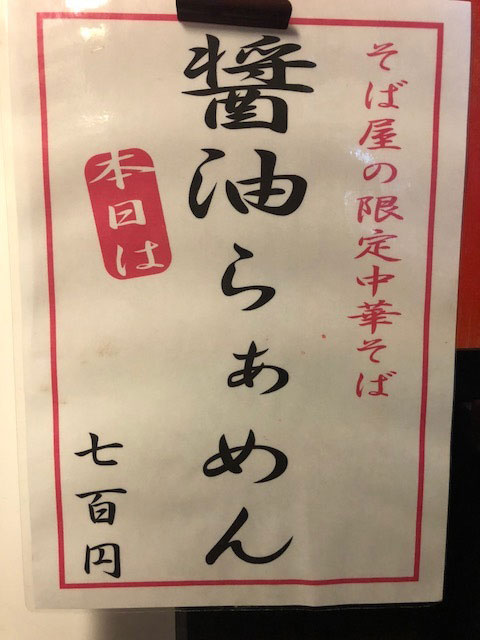 そば屋の限定中華そば
醤油らぁめん
本日は
七百円